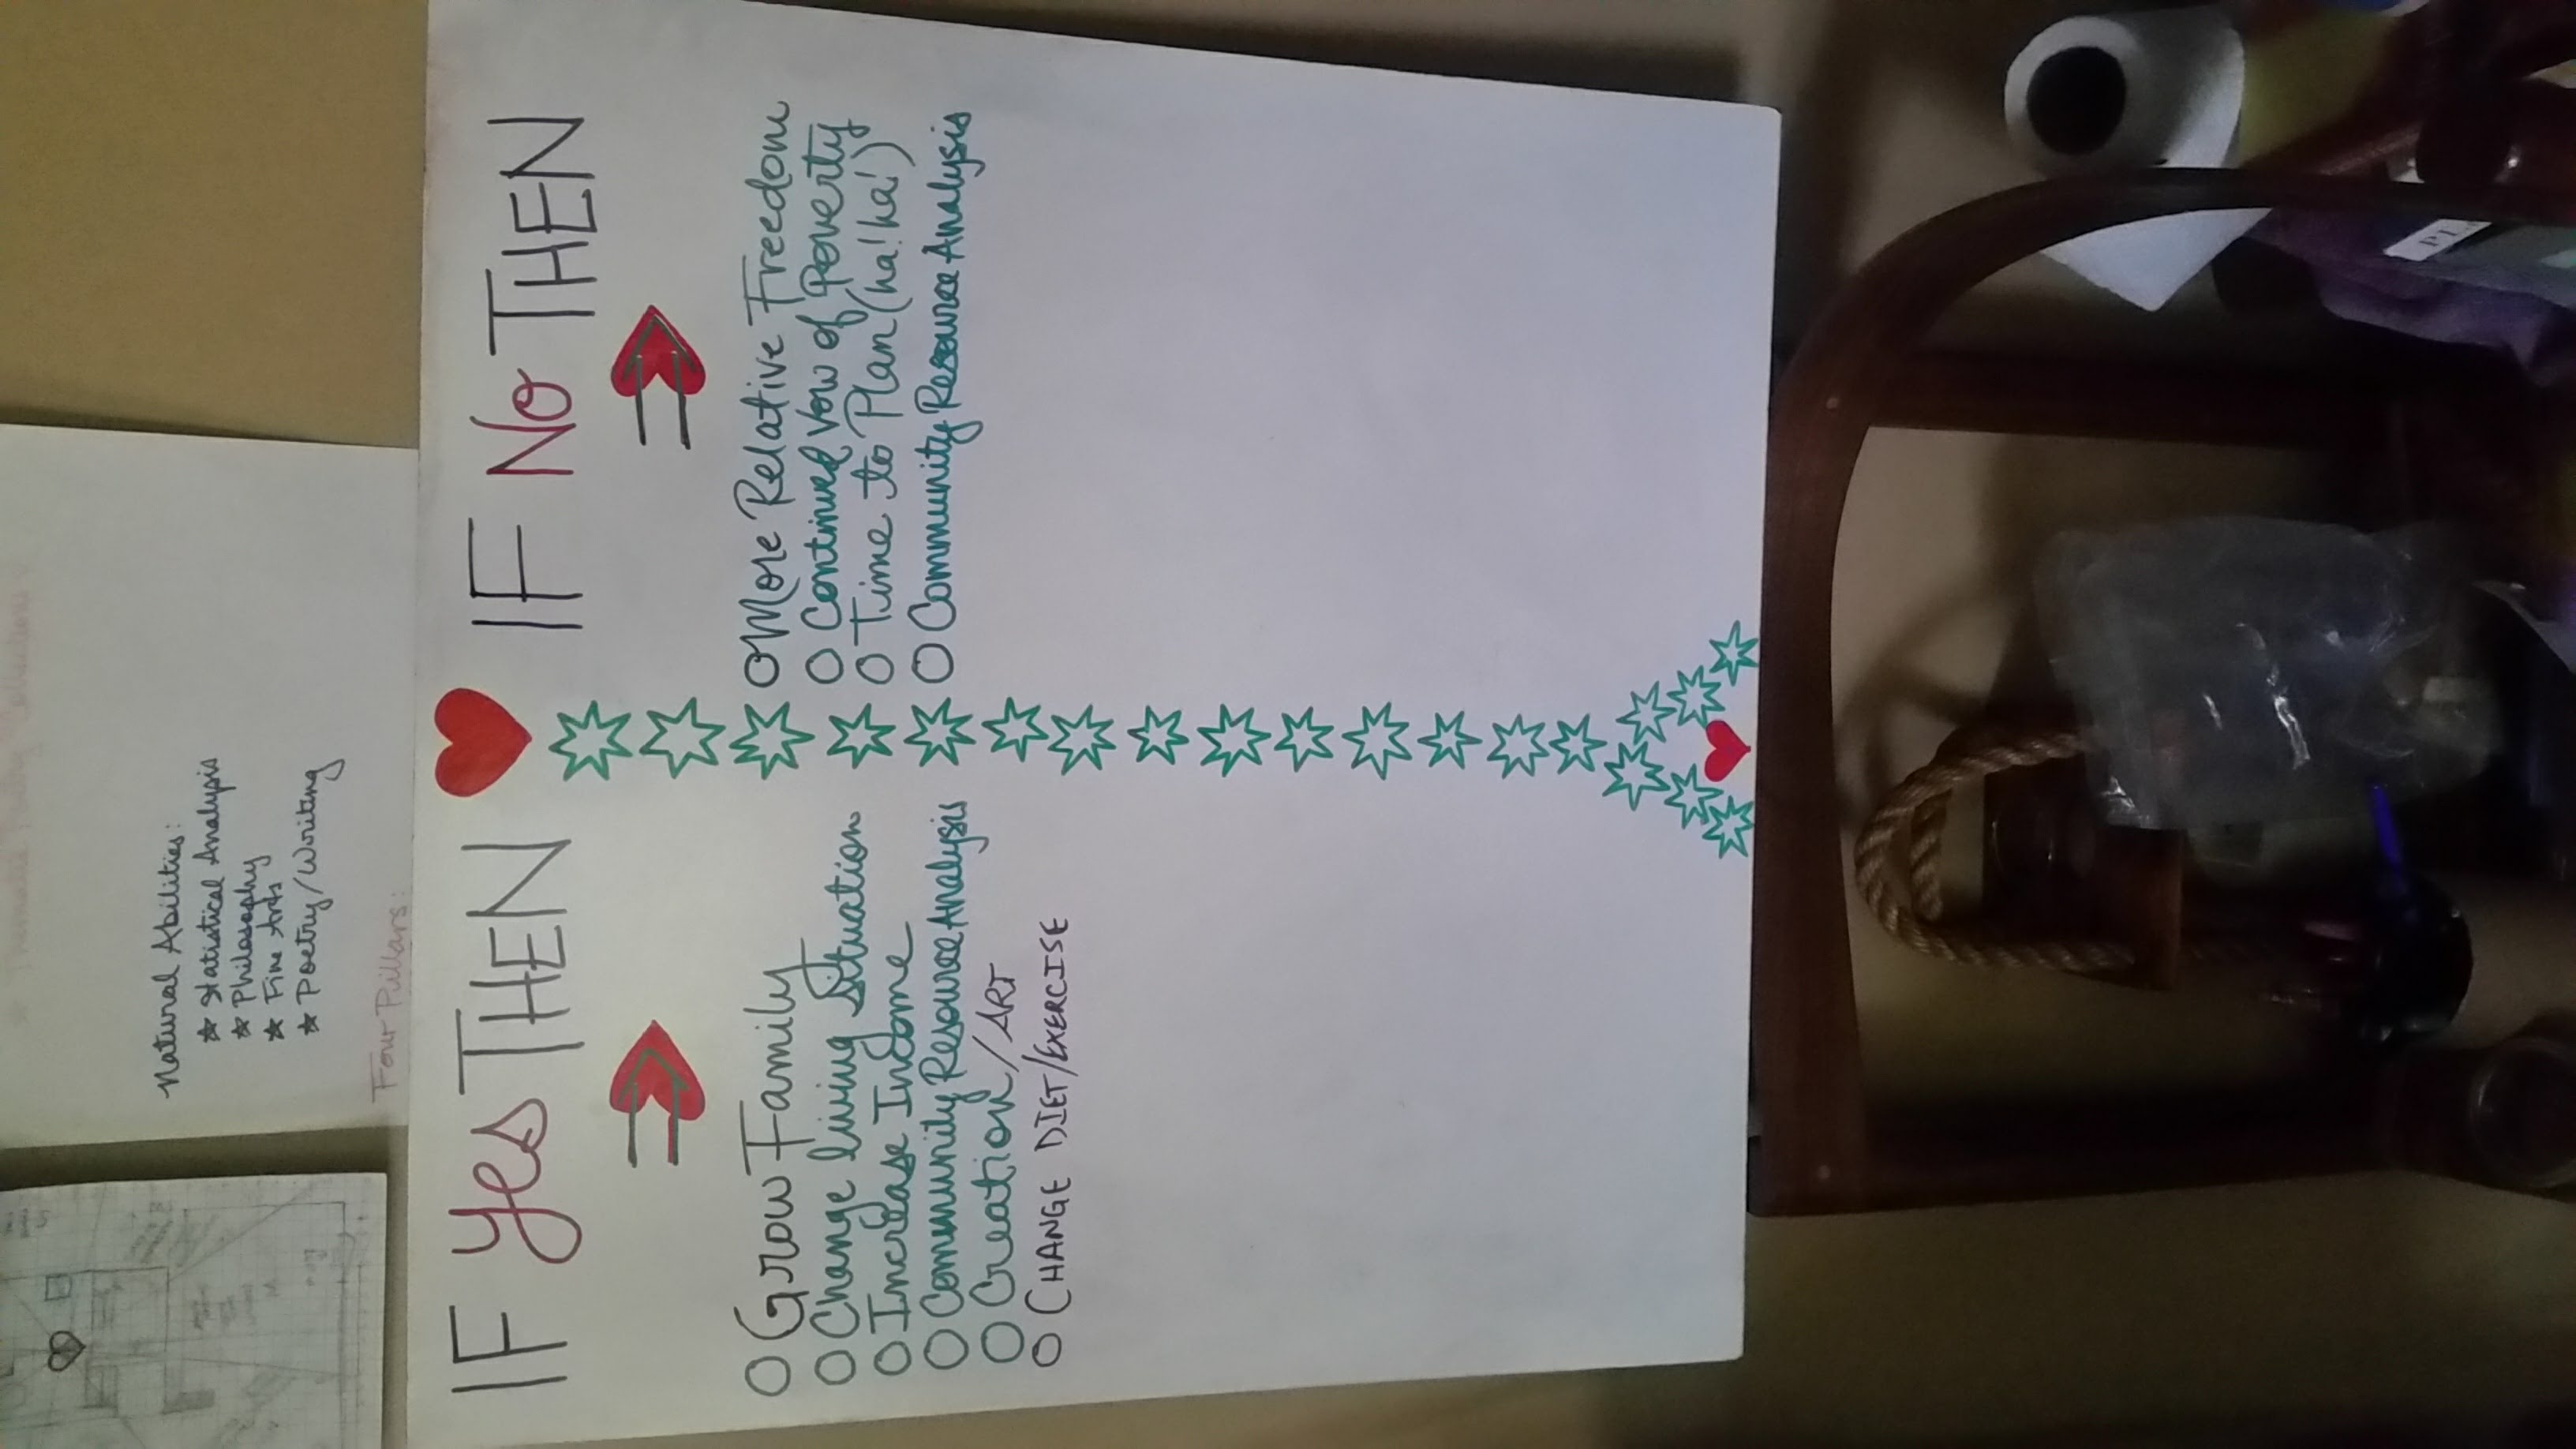 Thematic Poetry Collections
Natural Abilities:
☆ Statistical Analysis
☆ Philosophy
☆ Fine Arts
☆ Poetry/Writing
Four Pillars:
IF Yes THEN
O Grow Family
O Change living situation
O Increase Income
O Community Resource Analysis
O Creation/ART
O CHANGE DIET/EXERCISE
IF No THEN
O More Relative Freedom
O Continued Vow of Poverty
O Time to Plan (ha! ha!)
O Community Resource Analysis